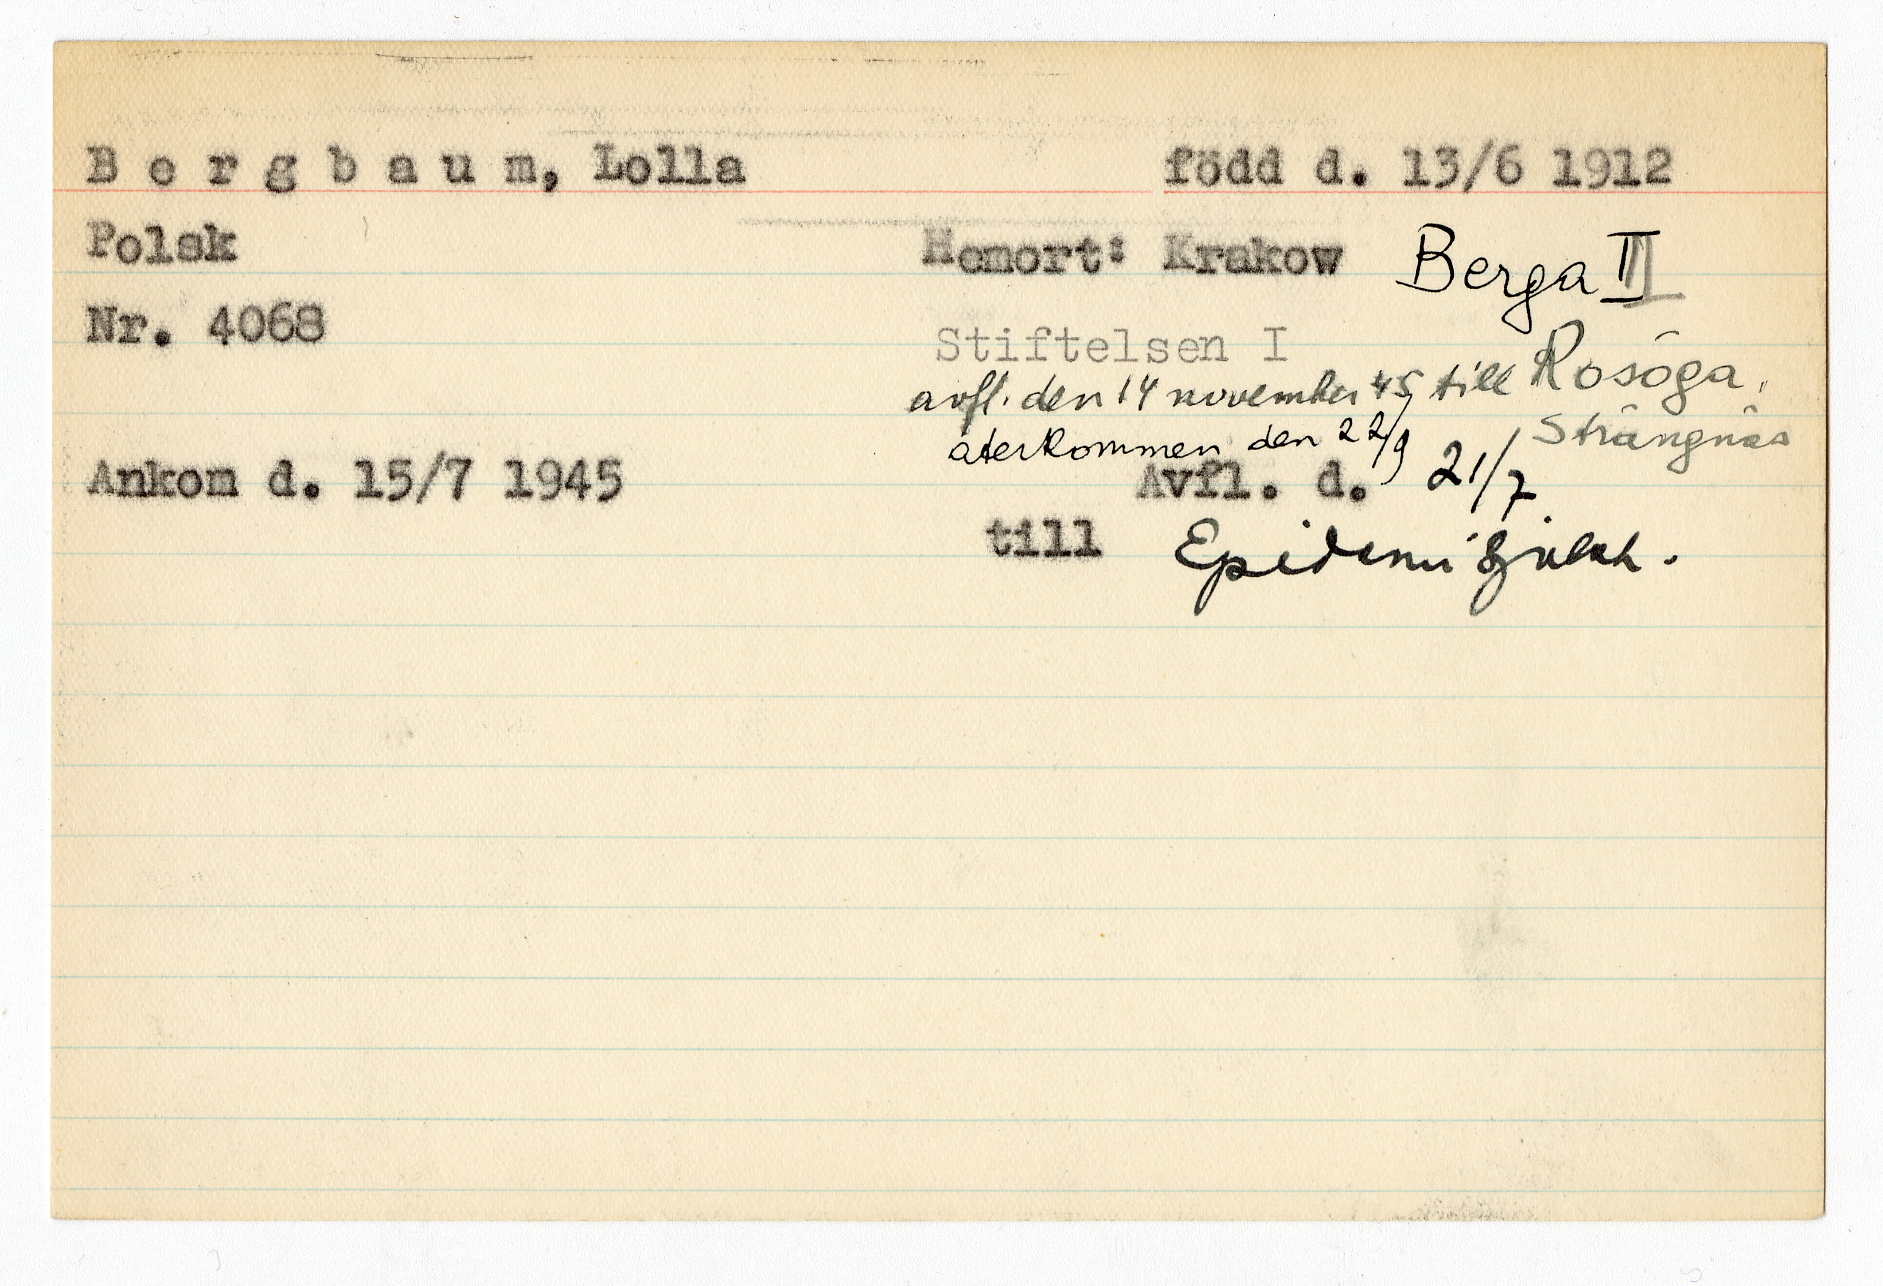 B e r g b a u m, Lolla född d. 13/6 1912
Polsk Hemort: Krakow Berga II
Nr. 4068 Stiftelsen I
avfl. den 14 november 45 till Rosöga,
Strängnäs
återkommen den 22/9
Ankom d. 15/7 1945 Avfl. d. 21/7
till Epidemisjukh.